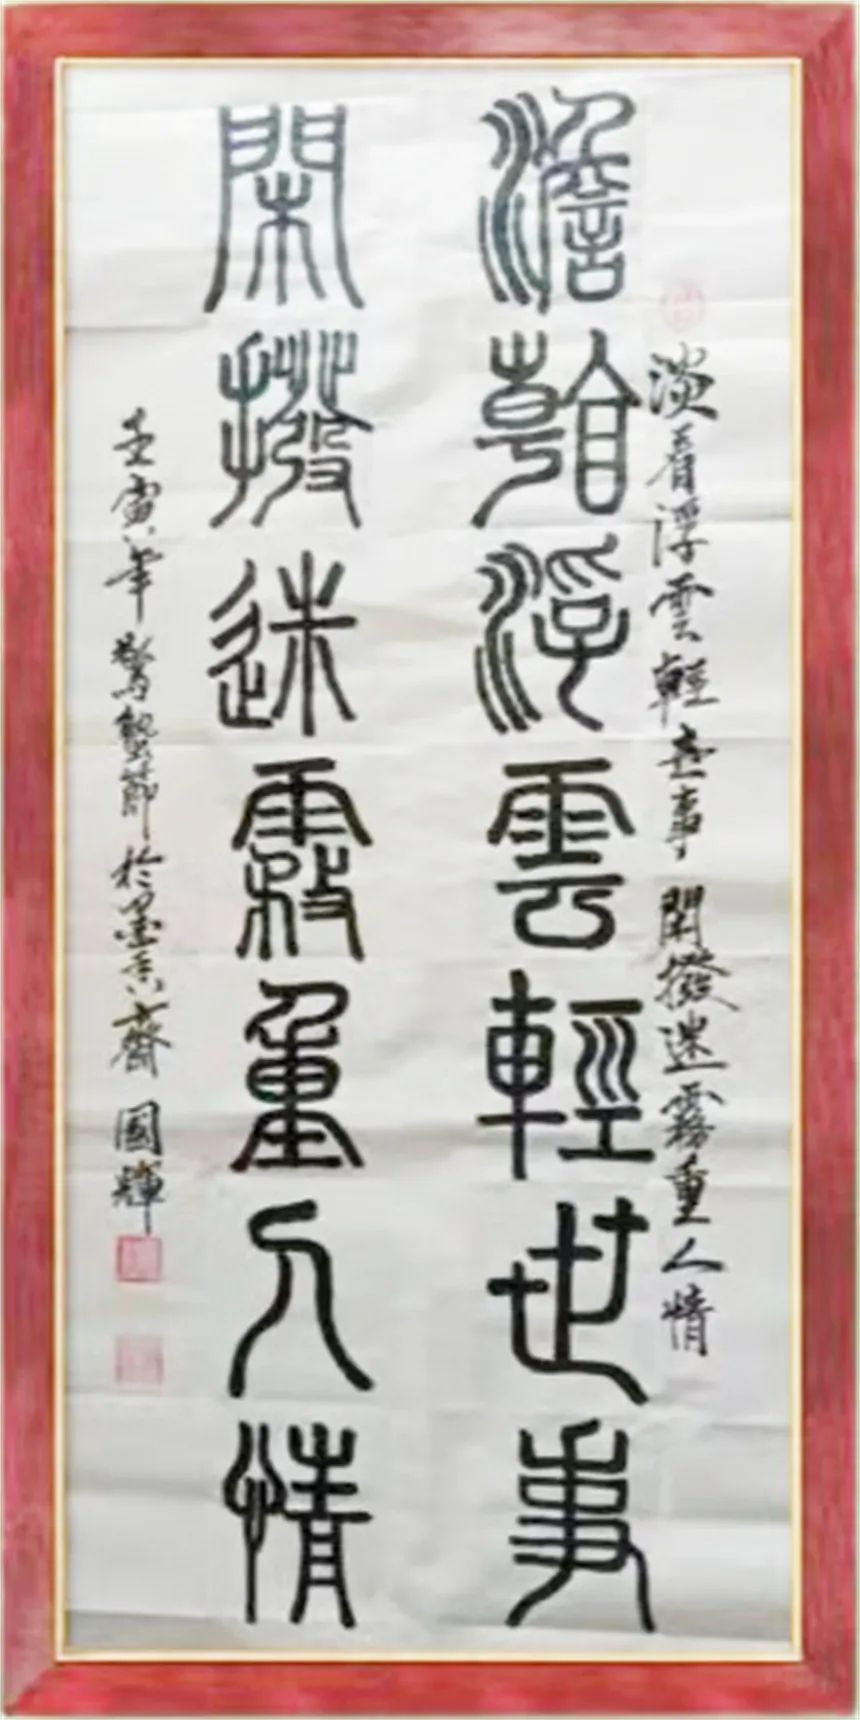 淡看浮雲輕世事 閑撥迷霧重人情
澹看浮雲輕世事
閑撥迷霧重人情
壬寅年驚蟄節於墨香齋 國輝